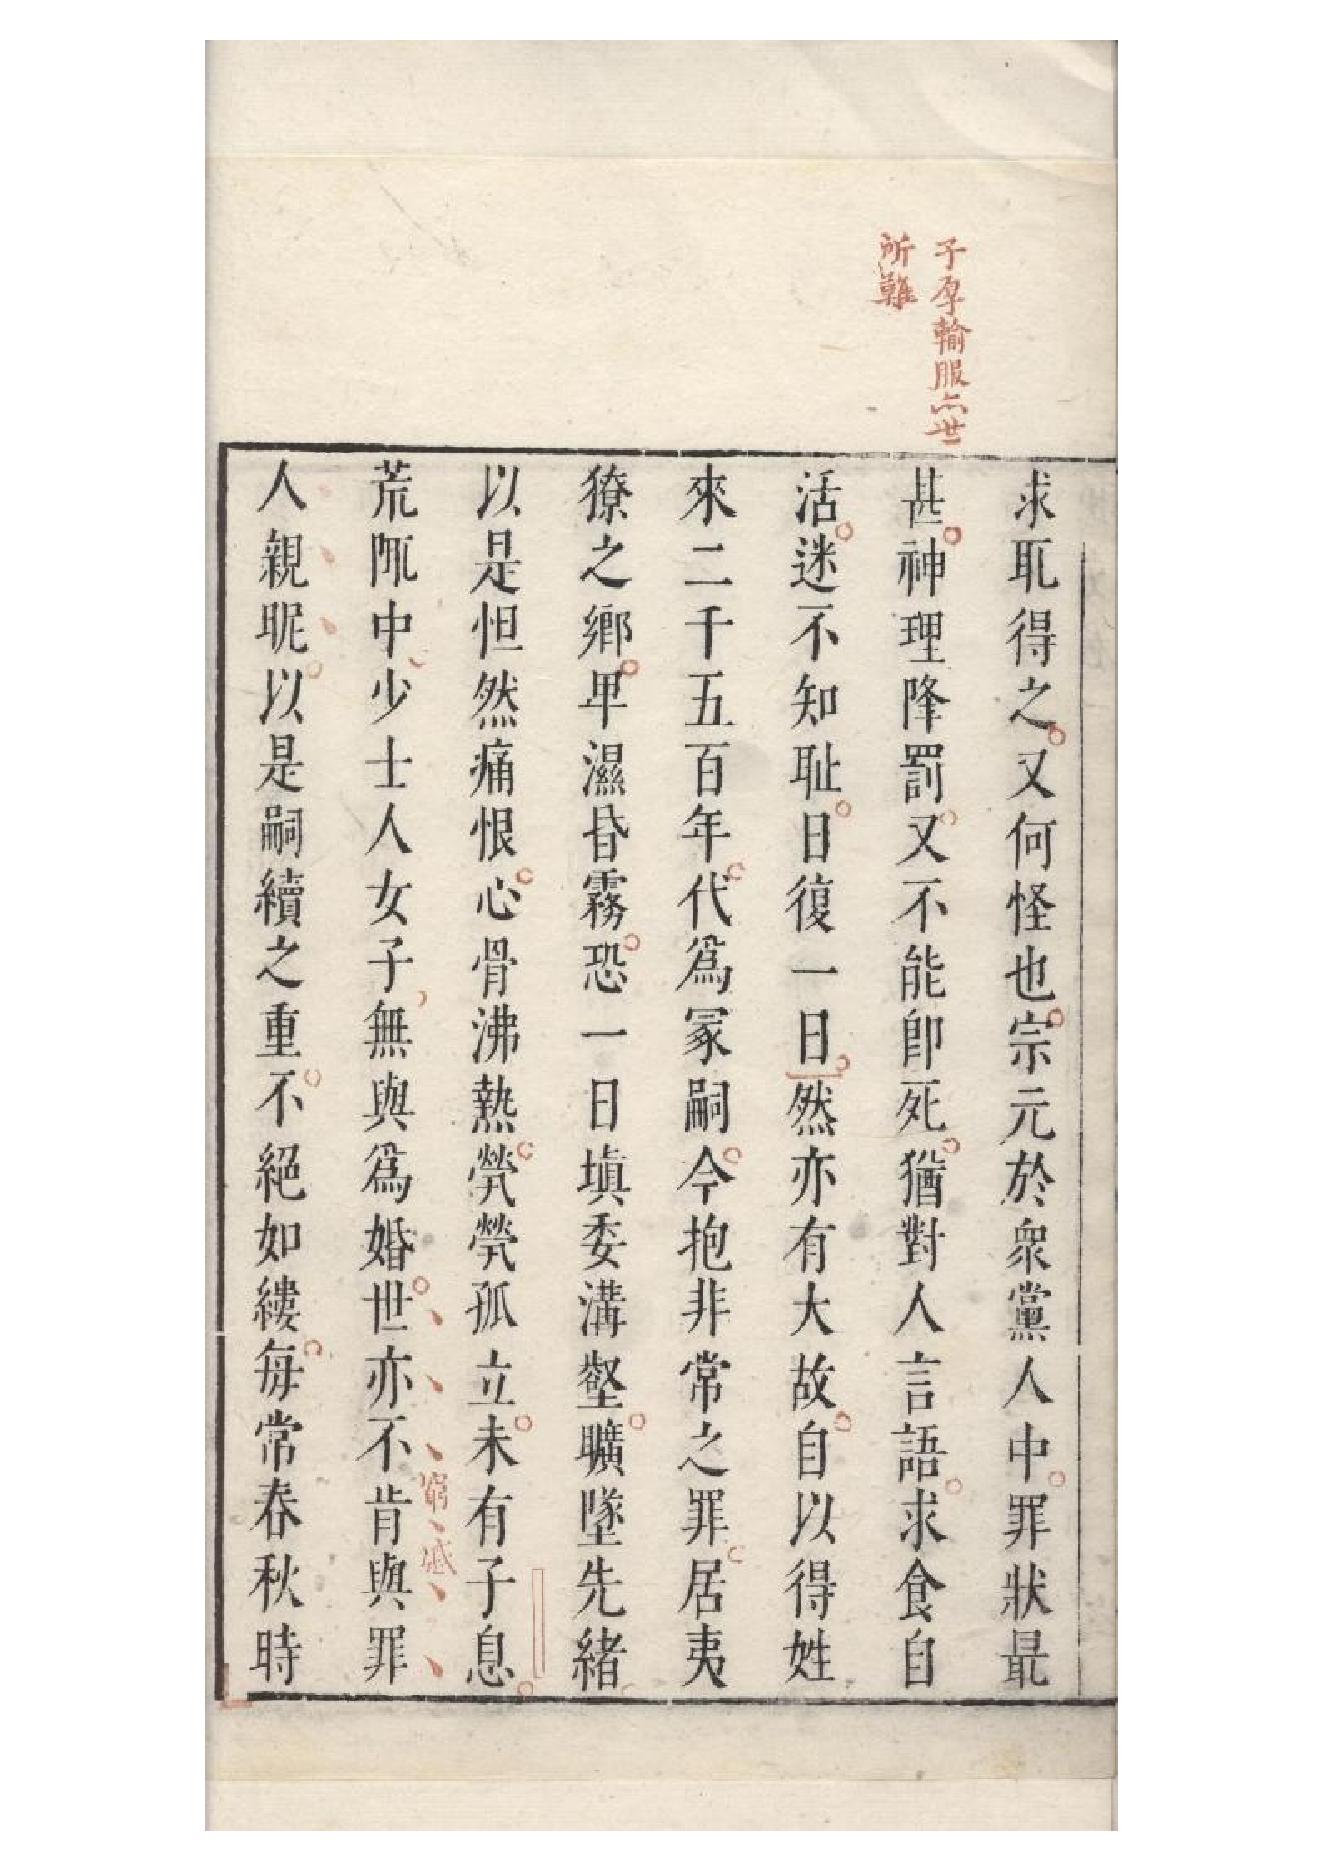 子孕輸服亦世
所難
求取得之又何怪也宗元於衆黨人中罪狀最
甚神理降罰又不能卽死猶對人言語求食自
活迷不知耻日復一日然亦有大故自以得姓
來二千五百年代爲冢嗣今抱非常之罪居夷
獠之鄉卑濕昏霧恐一日塡委溝壑曠墜先緒
以是怛然痛恨心骨沸熱煢煢孤立未有子息
荒陬中少士人女子無與爲婚世亦不肯與罪
窮慼
人親昵以是嗣續之重不絕如縷每常春秋時